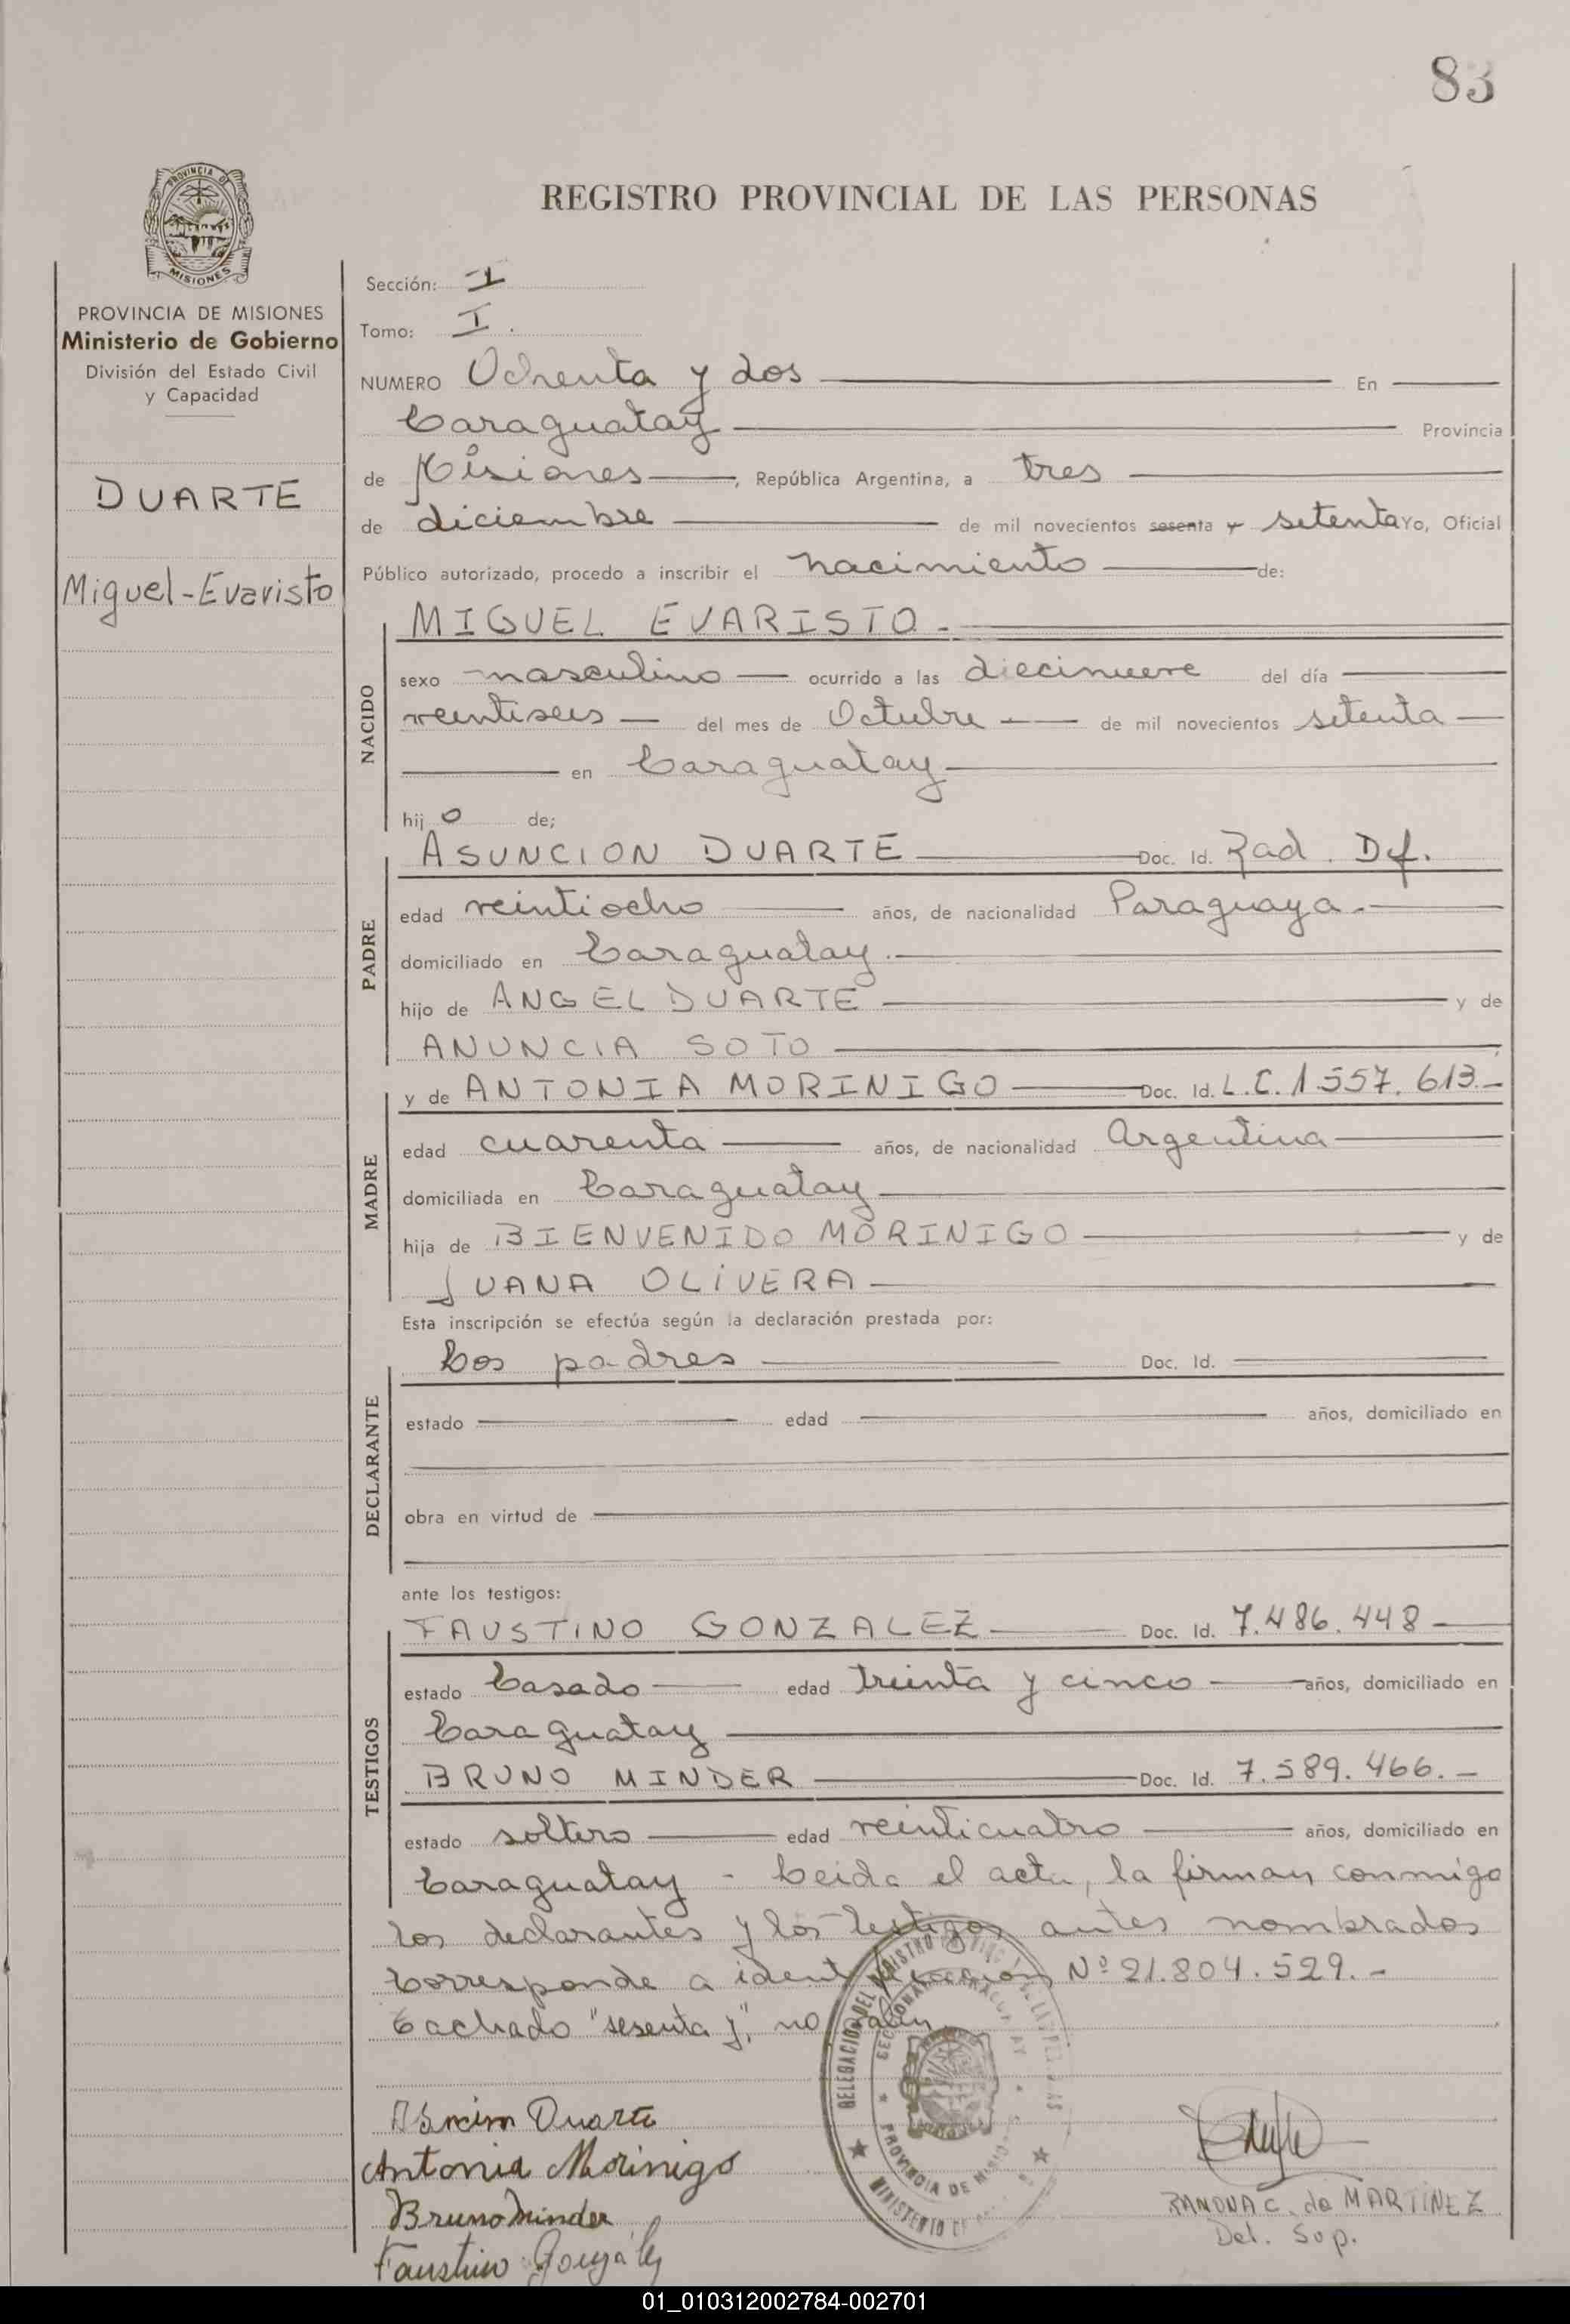 83
PROVINCIA DE
MISIONES
REGISTRO PROVINCIAL DE LAS PERSONAS
PROVINCIA DE MISIONES
Ministerio de Gobierno
División del Estado Civil
y Capacidad
DUARTE
Miguel-Evaristo
Sección: I
Tomo: I.
NUMERO Ochenta y dos En
Caraguatay Provincia
de Misiones, República Argentina, a tres
de diciembre de mil novecientos sesenta y setenta Yo, Oficial
Público autorizado, procedo a inscribir el nacimiento de:
NACIDO
MIGUEL EVARISTO.-
sexo masculino ocurrido a las diecinueve del día
veintiseis del mes de Octubre de mil novecientos setenta
en Caraguatay
hijo de;
PADRE
ASUNCION DUARTE Doc. Id. Rad. Df.
edad veintiocho años, de nacionalidad Paraguaya.-
domiciliado en Caraguatay.-
hijo de ANGEL DUARTE y de
ANUNCIA SOTO
MADRE
y de ANTONIA MORINIGO Doc. Id. L.C. 1.557.613.-
edad cuarenta años, de nacionalidad Argentina
domiciliada en Caraguatay
hija de BIENVENIDO MORINIGO y de
JUANA OLIVERA
Esta inscripción se efectúa según la declaración prestada por:
DECLARANTE
Los padres Doc. Id.
estado edad años, domiciliado en
obra en virtud de
ante los testigos:
TESTIGOS
FAUSTINO GONZALEZ Doc. Id. 7.486.448
estado Casado edad treinta y cinco años, domiciliado en
Caraguatay
BRUNO MINDER Doc. Id. 7.589.466.-
estado soltero edad veinticuatro años, domiciliado en
Caraguatay - Leida el acta, la firman conmigo
los declarantes y los testigos antes nombrados
Corresponde a identificación Nº 21.804.529.-
Tachado "sesenta y", no valen
DELEGACION DEL REGISTRO PROVINCIAL DE LAS PERSONAS
SECCIONAL CARAGUATAY
PROVINCIA DE MISIONES
MINISTERIO DE
Duarte
Antonia Morinigo
Bruno Minder
Faustino González
RAMONA C. de MARTINEZ
Del. Sup.
01_010312002784-002701